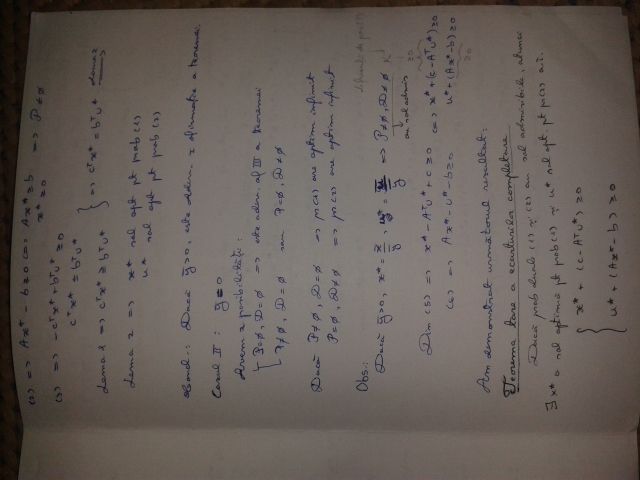 (2) => Ax* - b ≥ 0 <=> Ax* ≥ b
x* ≥ 0 => P ≠ ∅
(3) => -cᵀx* + bᵀu* ≥ 0
cᵀx* ≤ bᵀu*
Lema 1 => cᵀx* ≥ bᵀu* } => cᵀx* = bᵀu* Lema 2 =>
Lema 2 => x* sol opt pt prob (1)
u* sol opt pt prob (2)
Dacă ȳ>0, este adev. afirmație a teoremei.
Cazul II : ȳ = 0
Avem 2 posibilități:
P=∅, D=∅ => este adev. af III a teoremei
P≠∅, D=∅ sau P=∅, D≠∅
Dacă P≠∅, D=∅ => pr(1) are optim infinit
P=∅, D≠∅ => pr(2) are optim infinit
Obs.:
Dacă ȳ>0, x* = x̄/ȳ, u* = ū/ȳ => P≠∅, D≠∅
au sol admis
Din (5) => x* - Aᵀu* + c ≥ 0 <=> x* + (c - Aᵀu*) ≥ 0
≥0
(6) => Ax* - u* - b ≥ 0 u* + (Ax* - b) ≥ 0
≥0
Am demonstrat următorul rezultat:
Teorema tare a ecarturilor complementare
Dacă prob duale (1) și (2) au sol admisibile, atunci
∃ x* o sol optimă pt prob (1) și u* sol opt. pt pr(2) a.î.
x* + (c - Aᵀu*) ≥ 0
u* + (Ax* - b) ≥ 0